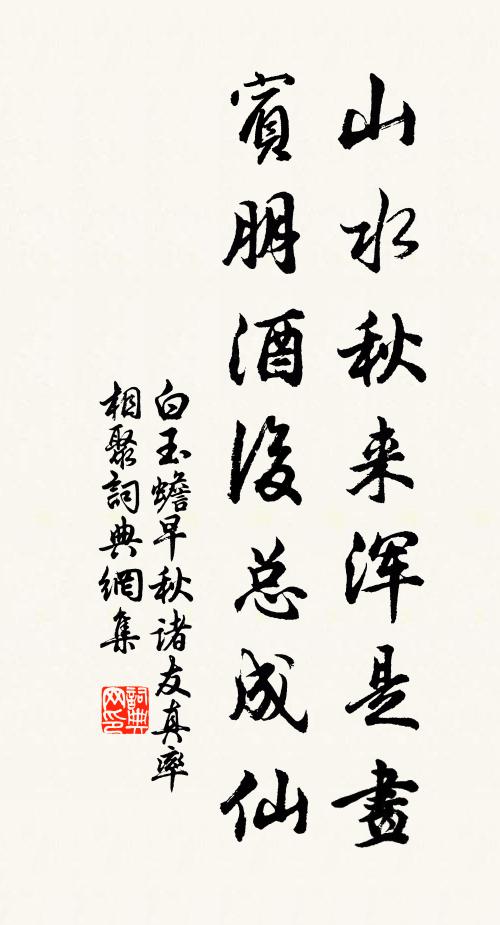 山水秋来浑是畫
賓朋酒後总成仙
白玉蟾早秋诸友真率
相聚詞典網集
詞典网印